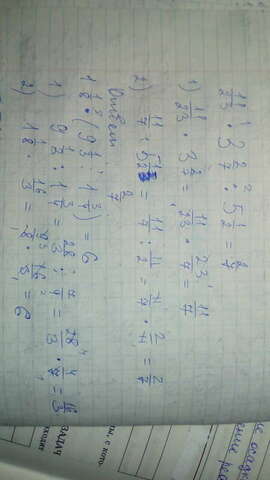 11/23 · 3 2/7 : 5 1/2 = 2/7
1) 11/23 · 3 2/7 = 11/23 · 23/7 = 11/7
2) 11/7 : 5 1/2 = 11/7 : 11/2 = 11/7 · 2/11 = 2/7
Ответ 2/7
1 1/8 · (9 1/3 : 1 3/4) = 6
1) 9 1/3 : 1 3/4 = 28/3 : 7/4 = 28/3 · 4/7 = 16/3
2) 1 1/8 · 16/3 = 9/8 · 16/3 = 6
ЗАДАЧ